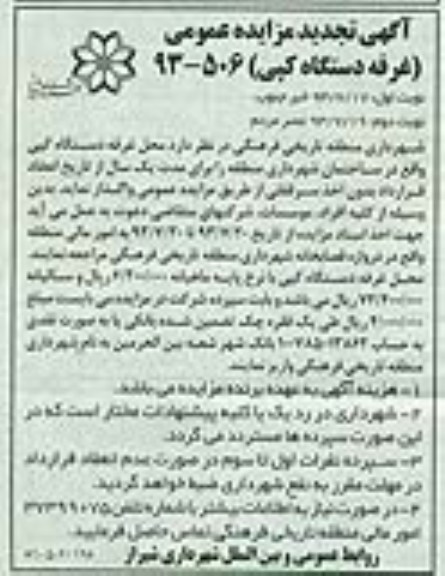 آگهی تجدید مزایده عمومی
(غرفه دستگاه کپی) ۵۰۶-۹۳
نوبت اول: ۹۳/۷/۱۷ خبر جنوب
نوبت دوم: ۹۳/۷/۱۹ عصر مردم
شهرداری منطقه تاریخی فرهنگی در نظر دارد محل غرفه دستگاه کپی
واقع در ساختمان شهرداری منطقه را برای مدت یک سال از تاریخ انعقاد
قرارداد بدون اخذ سرقفلی از طریق مزایده عمومی واگذار نماید. بدین
وسیله از کلیه افراد، موسسات، شرکتهای متقاضی دعوت به عمل می آید
جهت اخذ اسناد مزایده از تاریخ ۹۳/۷/۲۰ تا ۹۳/۷/۳۰ به امور مالی منطقه
واقع در دروازه قصابخانه شهرداری منطقه تاریخی فرهنگی مراجعه نمایند.
محل غرفه دستگاه کپی با نرخ پایه ماهیانه ریال و سالیانه
ریال می باشد و بابت سپرده شرکت در مزایده می بایست مبلغ
ریال طی یک فقره چک تضمین شده بانکی یا به صورت نقدی
به حساب بانک شهر شعبه بین الحرمین به نام شهرداری
منطقه تاریخی فرهنگی واریز نمایند.
۱- هزینه آگهی به عهده برنده مزایده می باشد.
۲- شهرداری در رد یک یا کلیه پیشنهادات مختار است که در
این صورت سپرده ها مسترد می گردد.
۳- سپرده نفرات اول تا سوم در صورت عدم انعقاد قرارداد
در مهلت مقرر به نفع شهرداری ضبط خواهد گردید.
۴- در صورت نیاز به اطلاعات بیشتر با شماره تلفن ۳۷۳۹۹۰۷۵
امور مالی منطقه تاریخی فرهنگی تماس حاصل فرمایید.
روابط عمومی و بین الملل شهرداری شیراز